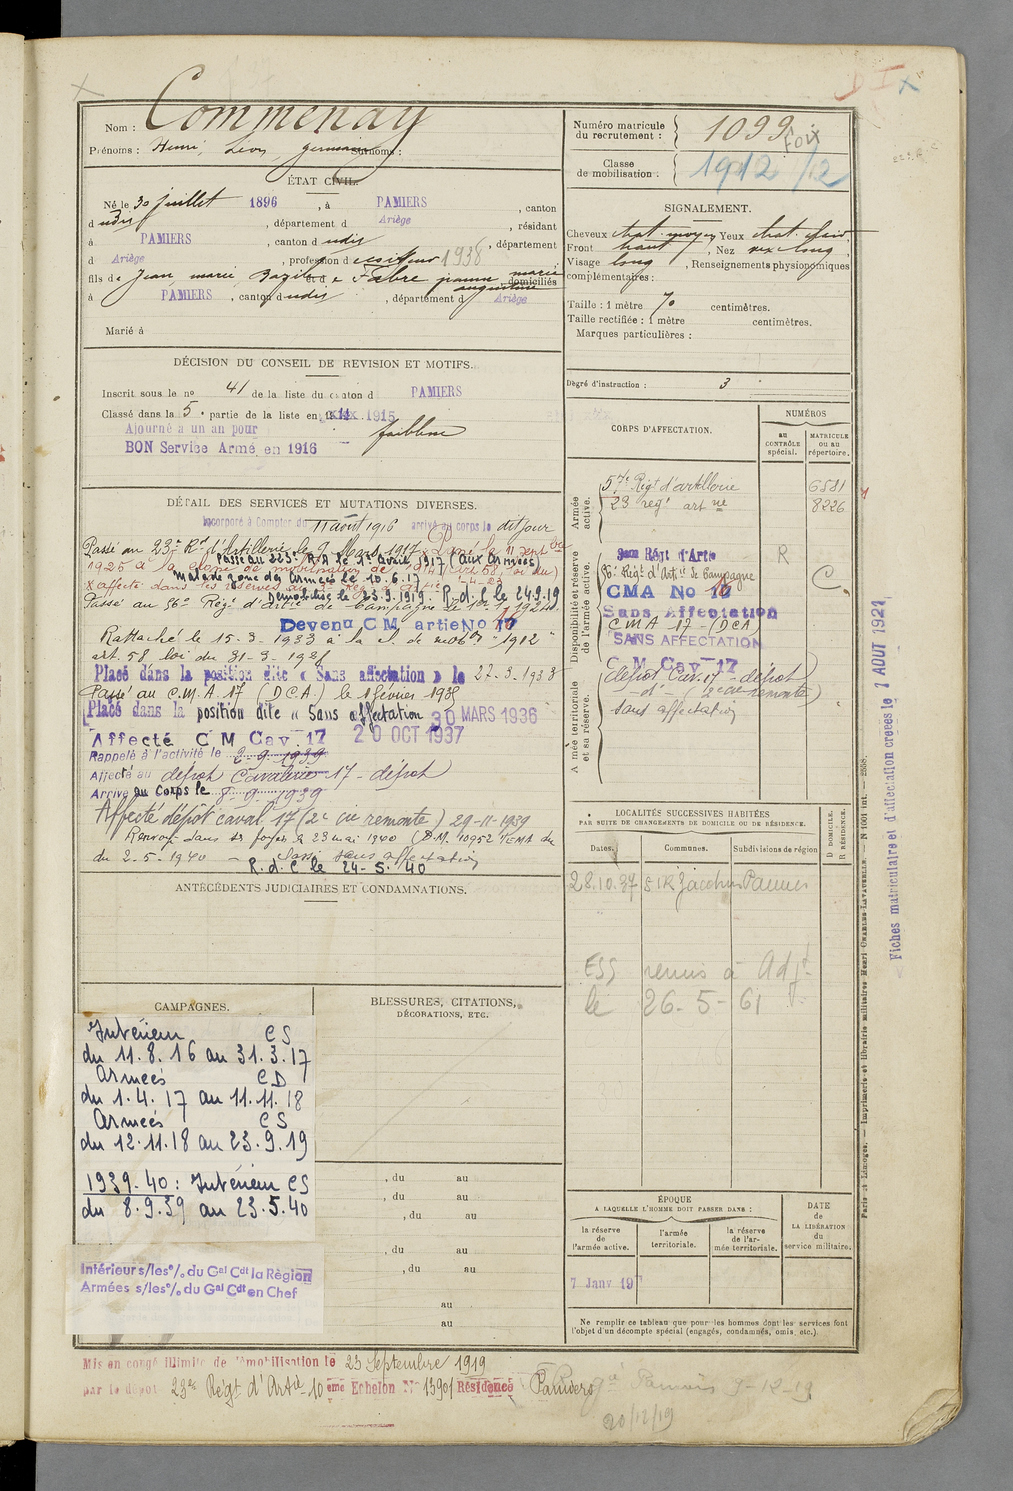 Nom : Commenay
Prénoms : Henri, Léon, germain Surnoms :
Numéro matricule du recrutement : 1099 FOIX
Classe de mobilisation : 1912 /12
ÉTAT CIVIL.
Né le 30 juillet 1896, à PAMIERS, canton
d udit, département d Ariège, résidant
à PAMIERS, canton d udit, département
d Ariège, profession d coiffeur 1938
fils de Jean, marie, Bazile et de Fabre jeanne marie augustine domiciliés
à PAMIERS, canton d udit, département d Ariège
Marié à
SIGNALEMENT.
Cheveux chat. moyen Yeux chat. clair,
Front haut, Nez rex long,
Visage long, Renseignements physionomiques
complémentaires :
Taille : 1 mètre 70 centimètres.
Taille rectifiée : 1 mètre centimètres.
Marques particulières :
Degré d'instruction : 3
DÉCISION DU CONSEIL DE REVISION ET MOTIFS.
Inscrit sous le no 41 de la liste du canton d PAMIERS
Classé dans la 5e partie de la liste en 1915
Ajourné à un an pour faiblesse
BON Service Armé en 1916
DÉTAIL DES SERVICES ET MUTATIONS DIVERSES.
Incorporé à Compter du 11 août 1916 arrivé au corps le dit jour
Passé au 23e Rt d'Artillerie le 9 Mars 1917
Passé au 223e R.A. le 1er avril 1917 (aux Armées)
Malade zone des Armées le 10.6.17
Démobilisé le 23.9.1919. R.d.C le 24.9.19
Passé au 56e Régt d'Artie de Campagne le 1er 1 1924.
Devenu C M artie No 17
Rattaché le 15-3-1933 à la cl. de mobon "1912"
art. 58 loi du 31-3-1928
Placé dans la position dite « Sans affectation » le 27-3-1933
Passé au C.M.A. 17 (D.C.A.) le 1 février 1935
Placé dans la position dite « Sans affectation » 30 MARS 1936
Affecté C M Cav. 17 20 OCT 1937
Rappelé à l'activité le 2-9-1939
Affecté au dépôt Cavalerie 17 - dépôt
Arrivé au Corps le 8-9-1939
Affecté dépôt caval 17 (2e cie remonte) 29-11-1939
Renvoyé dans ses foyers le 23 mai 1940 (D.M. 10952 1/EMA du
du 2-5-1940 - Classé sans affectation
R.d.C le 24-5-40
CORPS D'AFFECTATION.
NUMÉROS
au CONTRÔLE spécial.
MATRICULE ou au répertoire.
Armée active.
57e Régt d'artillerie 6581
23 régt artie 8226
Disponibilité et réserve de l'armée active.
Régt d'Artie R
56e Régt d'Artie de Campagne C
CMA No 16
Sans Affectation
CMA -17- (DCA)
SANS AFFECTATION
C M Cav 17
Armée territoriale et sa réserve.
dépôt Cav. 17 - dépôt
-d°- (2e cie remonte)
sans affectation
LOCALITÉS SUCCESSIVES HABITÉES
PAR SUITE DE CHANGEMENTS DE DOMICILE OU DE RÉSIDENCE.
Dates. Communes. Subdivisions de région
D DOMICILE. R RÉSIDENCE.
28.10.37 Pamiers
ESS remis à Adjt
le 26-5-61
ANTÉCÉDENTS JUDICIAIRES ET CONDAMNATIONS.
CAMPAGNES.
Intérieur CS
du 11.8.16 au 31.3.17
Armées CD
du 1.4.17 au 11.11.18
Armées CS
du 12.11.18 au 23.9.19
1939.40 : Intérieur CS
du 8.9.39 au 23.5.40
Intérieur s/les o/. du Gal Cdt la Région
Armées s/les o/. du Gal Cdt en Chef
BLESSURES, CITATIONS,
DÉCORATIONS, ETC.
, du au
, du au
, du au
, du au
, du au
au
au
ÉPOQUE
A LAQUELLE L'HOMME DOIT PASSER DANS :
la réserve de l'armée active.
l'armée territoriale.
la réserve de l'armée territoriale.
DATE de LA LIBÉRATION du service militaire.
7 Janv 19
Ne remplir ce tableau que pour les hommes dont les services font
l'objet d'un décompte spécial (engagés, condamnés, omis, etc.)
Mis en congé illimité de démobilisation le 23 Septembre 1919
par le dépôt 23e Régt d'Artie 10eme Echelon No 13901 Résidence Pamiers
Pamiers 9-12-19
20/12/19
Fiches matriculaire et d'affectation créées le 1 AOUT 1921
Paris et Limoges. — Imprimerie et librairie militaires Henri CHARLES-LAVAUZELLE. — N° 1051 int. — 2558.